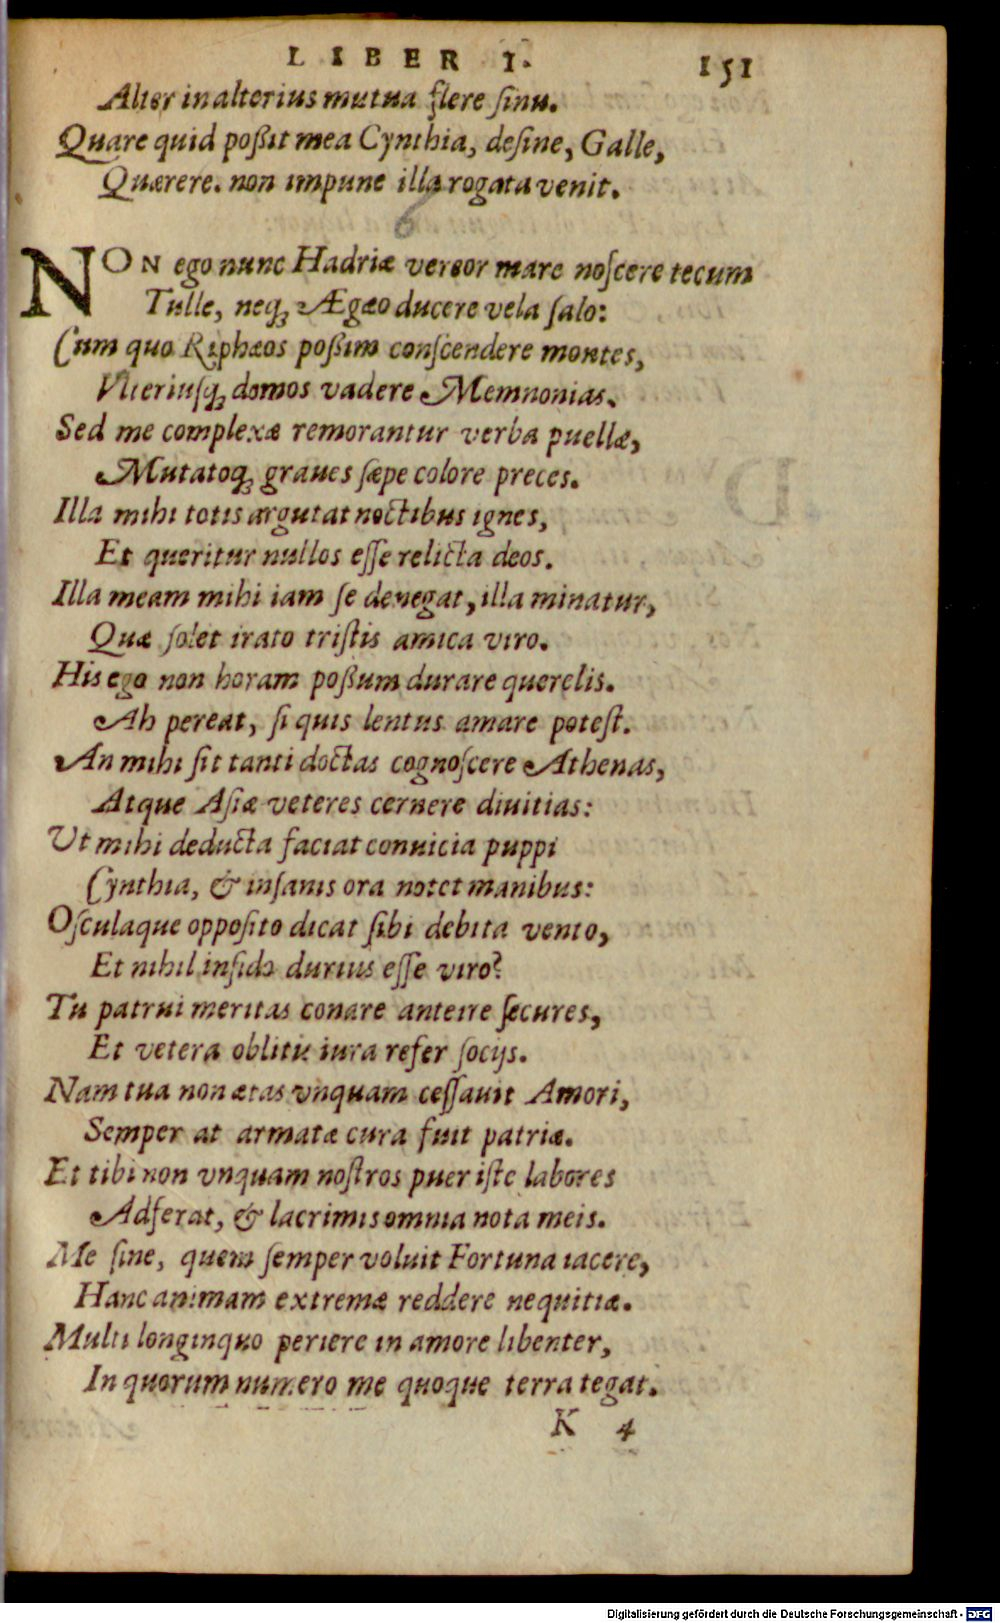 LIBER I. 151
Alter in alterius mutua flere ſinu.
Quare quid poßit mea Cynthia, deſine, Galle,
Quærere. non impune illa rogata venit.
6
NON ego nunc Hadriæ vereor mare noſcere tecum
Tulle, neq; Ægæo ducere vela ſalo:
Cum quo Riphæos poßim conſcendere montes,
Vlteriuſq; domos vadere Memnonias.
Sed me complexæ remorantur verba puellæ,
Mutatoq; graues ſæpe colore preces.
Illa mihi totis argutat noctibus ignes,
Et queritur nullos eſſe relicta deos.
Illa meam mihi iam ſe denegat, illa minatur,
Quæ ſolet irato triſtis amica viro.
His ego non horam poßum durare querelis.
Ah pereat, ſi quis lentus amare poteſt.
An mihi ſit tanti doctas cognoſcere Athenas,
Atque Aſiæ veteres cernere diuitias:
Ut mihi deducta faciat conuicia puppi
Cynthia, & inſanis ora notet manibus:
Oſculaque oppoſito dicat ſibi debita vento,
Et nihil infido durius eſſe viro?
Tu patrui meritas conare anteire ſecures,
Et vetera oblitu iura refer ſocijs.
Nam tua non ætas vnquam ceſſauit Amori,
Semper at armatæ cura fuit patriæ.
Et tibi non vnquam noſtros puer iſte labores
Adferat, & lacrimis omnia nota meis.
Me ſine, quem ſemper voluit Fortuna iacere,
Hanc animam extremæ reddere nequitiæ.
Multi longinquo periere in amore libenter,
In quorum numero me quoque terra tegat.
K 4
Digitalisierung gefördert durch die Deutsche Forschungsgemeinschaft - DFG